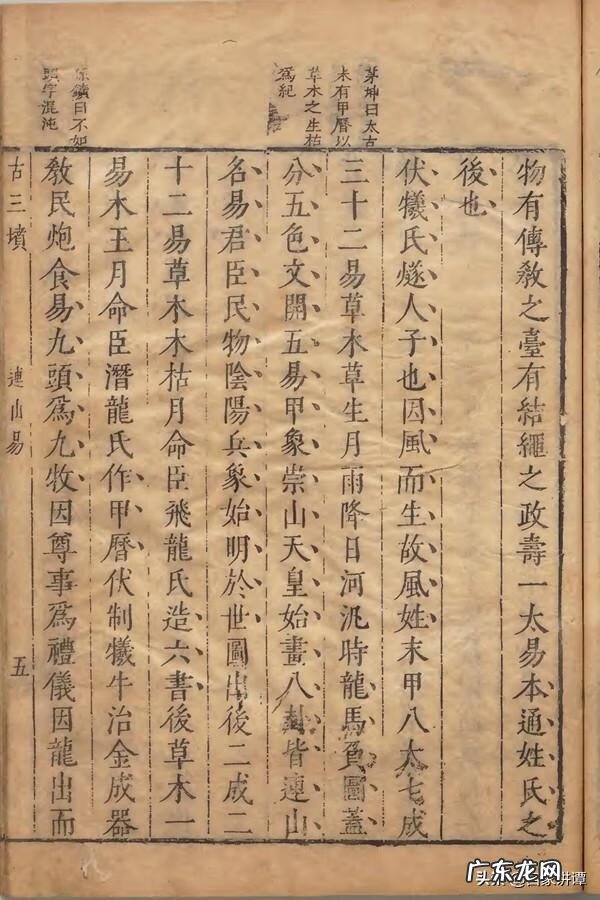 茅坤曰太古
未有甲曆以
草木之生枯
爲紀
曰不如
頭字混沌
物有傳教之臺有結繩之政壽一太易本通姓氏之
後也
伏犧氏燧人子也因風而生故風姓末甲八太七成
三十二易草木草生月雨降日河汎時龍馬負圖蓋
分五色文開五易甲象崇山天皇始畫八卦皆連山
名易君臣民物陰陽兵象始明於世圖出後二成二
十二易草木木枯月命臣飛龍氏造六書後草木一
易木王月命臣潛龍氏作甲曆伏制犧牛治金成器
教民炮食易九頭爲九牧因尊事爲禮儀因龍出而
古三墳
連山易
五
广东龙网
头条